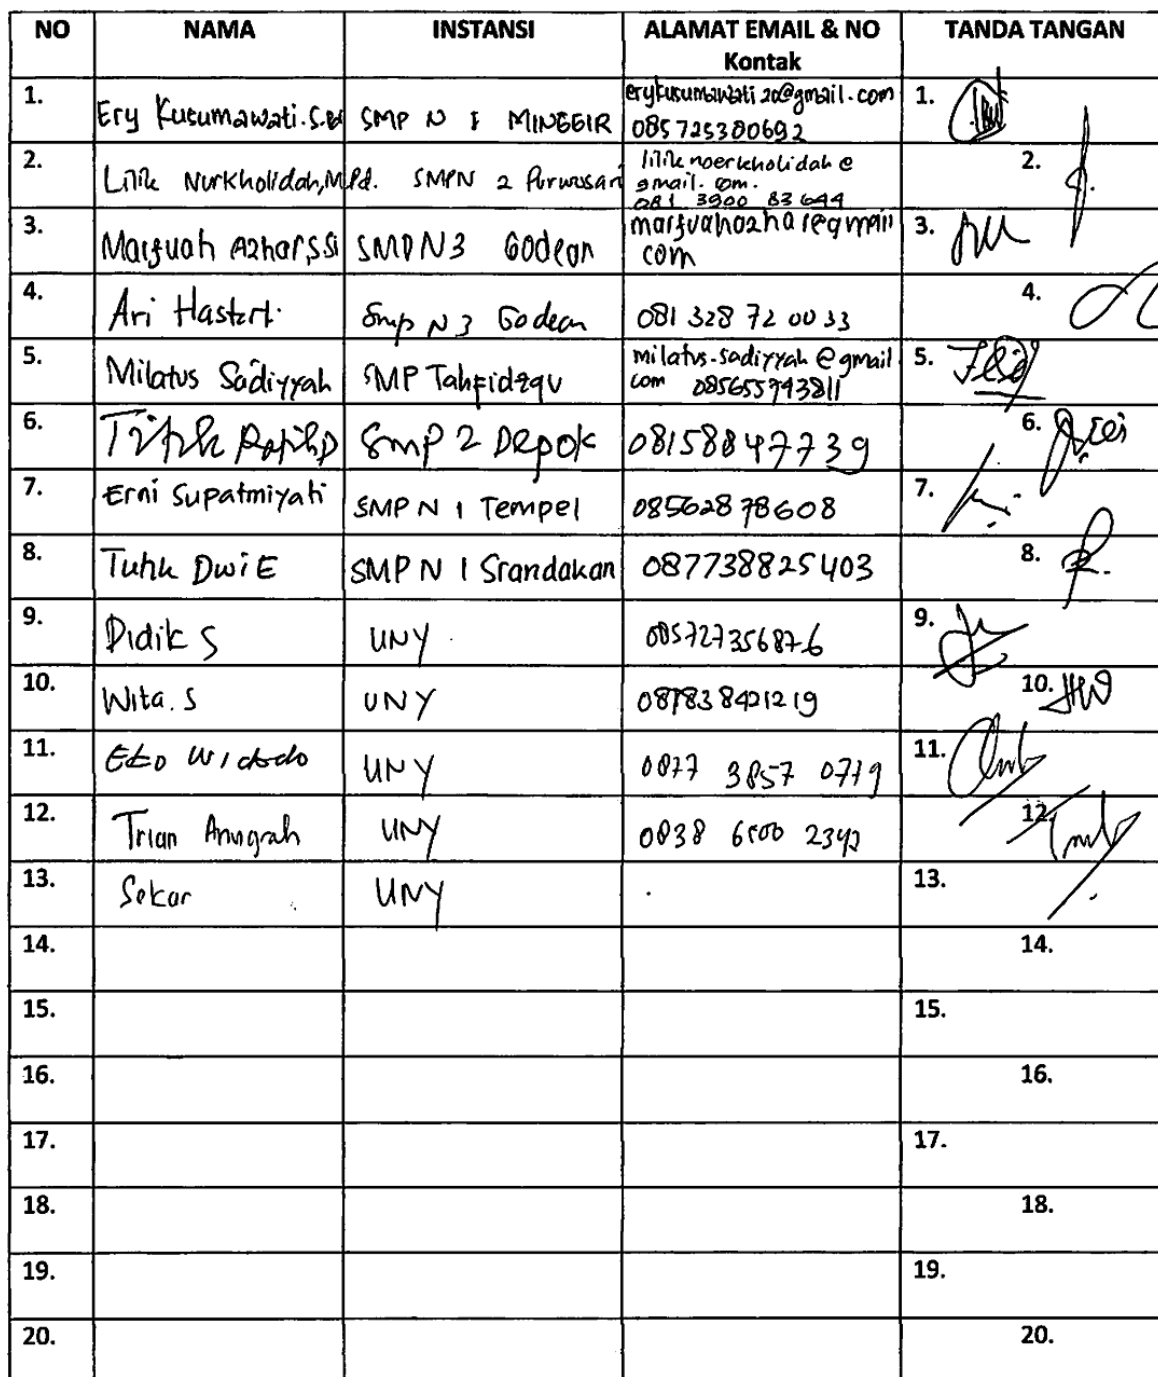 NO NAMA INSTANSI ALAMAT EMAIL & NO Kontak TANDA TANGAN
1. Ery Kusumawati.S.Pd SMP N 1 MINGGIR erykusumawati20@gmail.com 085725380692 1.
2. Lilik Nurkholidah,M.Pd. SMPN 2 Purwosari lilik noerkholidah@gmail.com. 081 3900 83644 2.
3. Marfuah Azhar,S.Si SMPN3 Godean marfuahazhar@gmail com 3.
4. Ari Hastuti. Smp N 3 Godean 081 328 72 00 33 4.
5. Milatus Sadiyyah SMP Tahfidzqu milatus.sadiyyah@gmail com 085655743811 5.
6. Titik Smp 2 Depok 081588477739 6.
7. Erni Supatmiyati SMP N 1 Tempel 08562878608 7.
8. Tutik Dwi E SMP N 1 Srandakan 087738825403 8.
9. Didik S UNY 085727356876 9.
10. Wita. S UNY 087838421219 10.
11. Eko Widodo UNY 0877 3857 0719 11.
12. Trian Anugrah UNY 0838 6500 2342 12.
13. Sekar UNY 13.
14. 14.
15. 15.
16. 16.
17. 17.
18. 18.
19. 19.
20. 20.